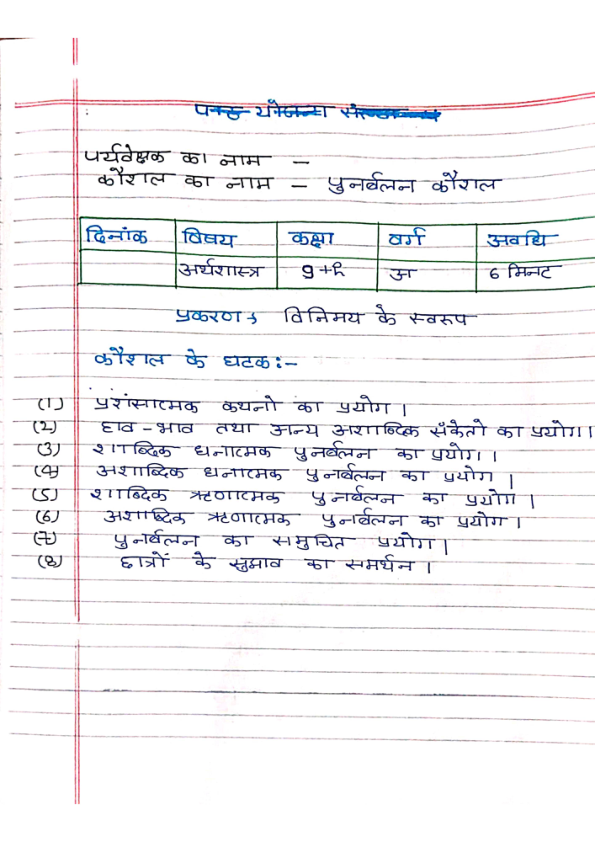 पर्यवेक्षक का नाम —
कौशल का नाम — पुनर्बलन कौशल
दिनांक विषय कक्षा वर्ग अवधि
अर्थशास्त्र 9+h अ 6 मिनट
प्रकरण → विनिमय के स्वरूप
कौशल के घटक :-
(1) प्रशंसात्मक कथनो का प्रयोग ।
(2) हाव - भाव तथा अन्य अशाब्दिक संकेतो का प्रयोग।
(3) शाब्दिक धनात्मक पुनर्बलन का प्रयोग ।
(4) अशाब्दिक धनात्मक पुनर्बलन का प्रयोग ।
(5) शाब्दिक ऋणात्मक पुनर्बलन का प्रयोग ।
(6) अशाब्दिक ऋणात्मक पुनर्बलन का प्रयोग ।
(7) पुनर्बलन का समुचित प्रयोग ।
(8) छात्रों के सुझाव का समर्थन ।